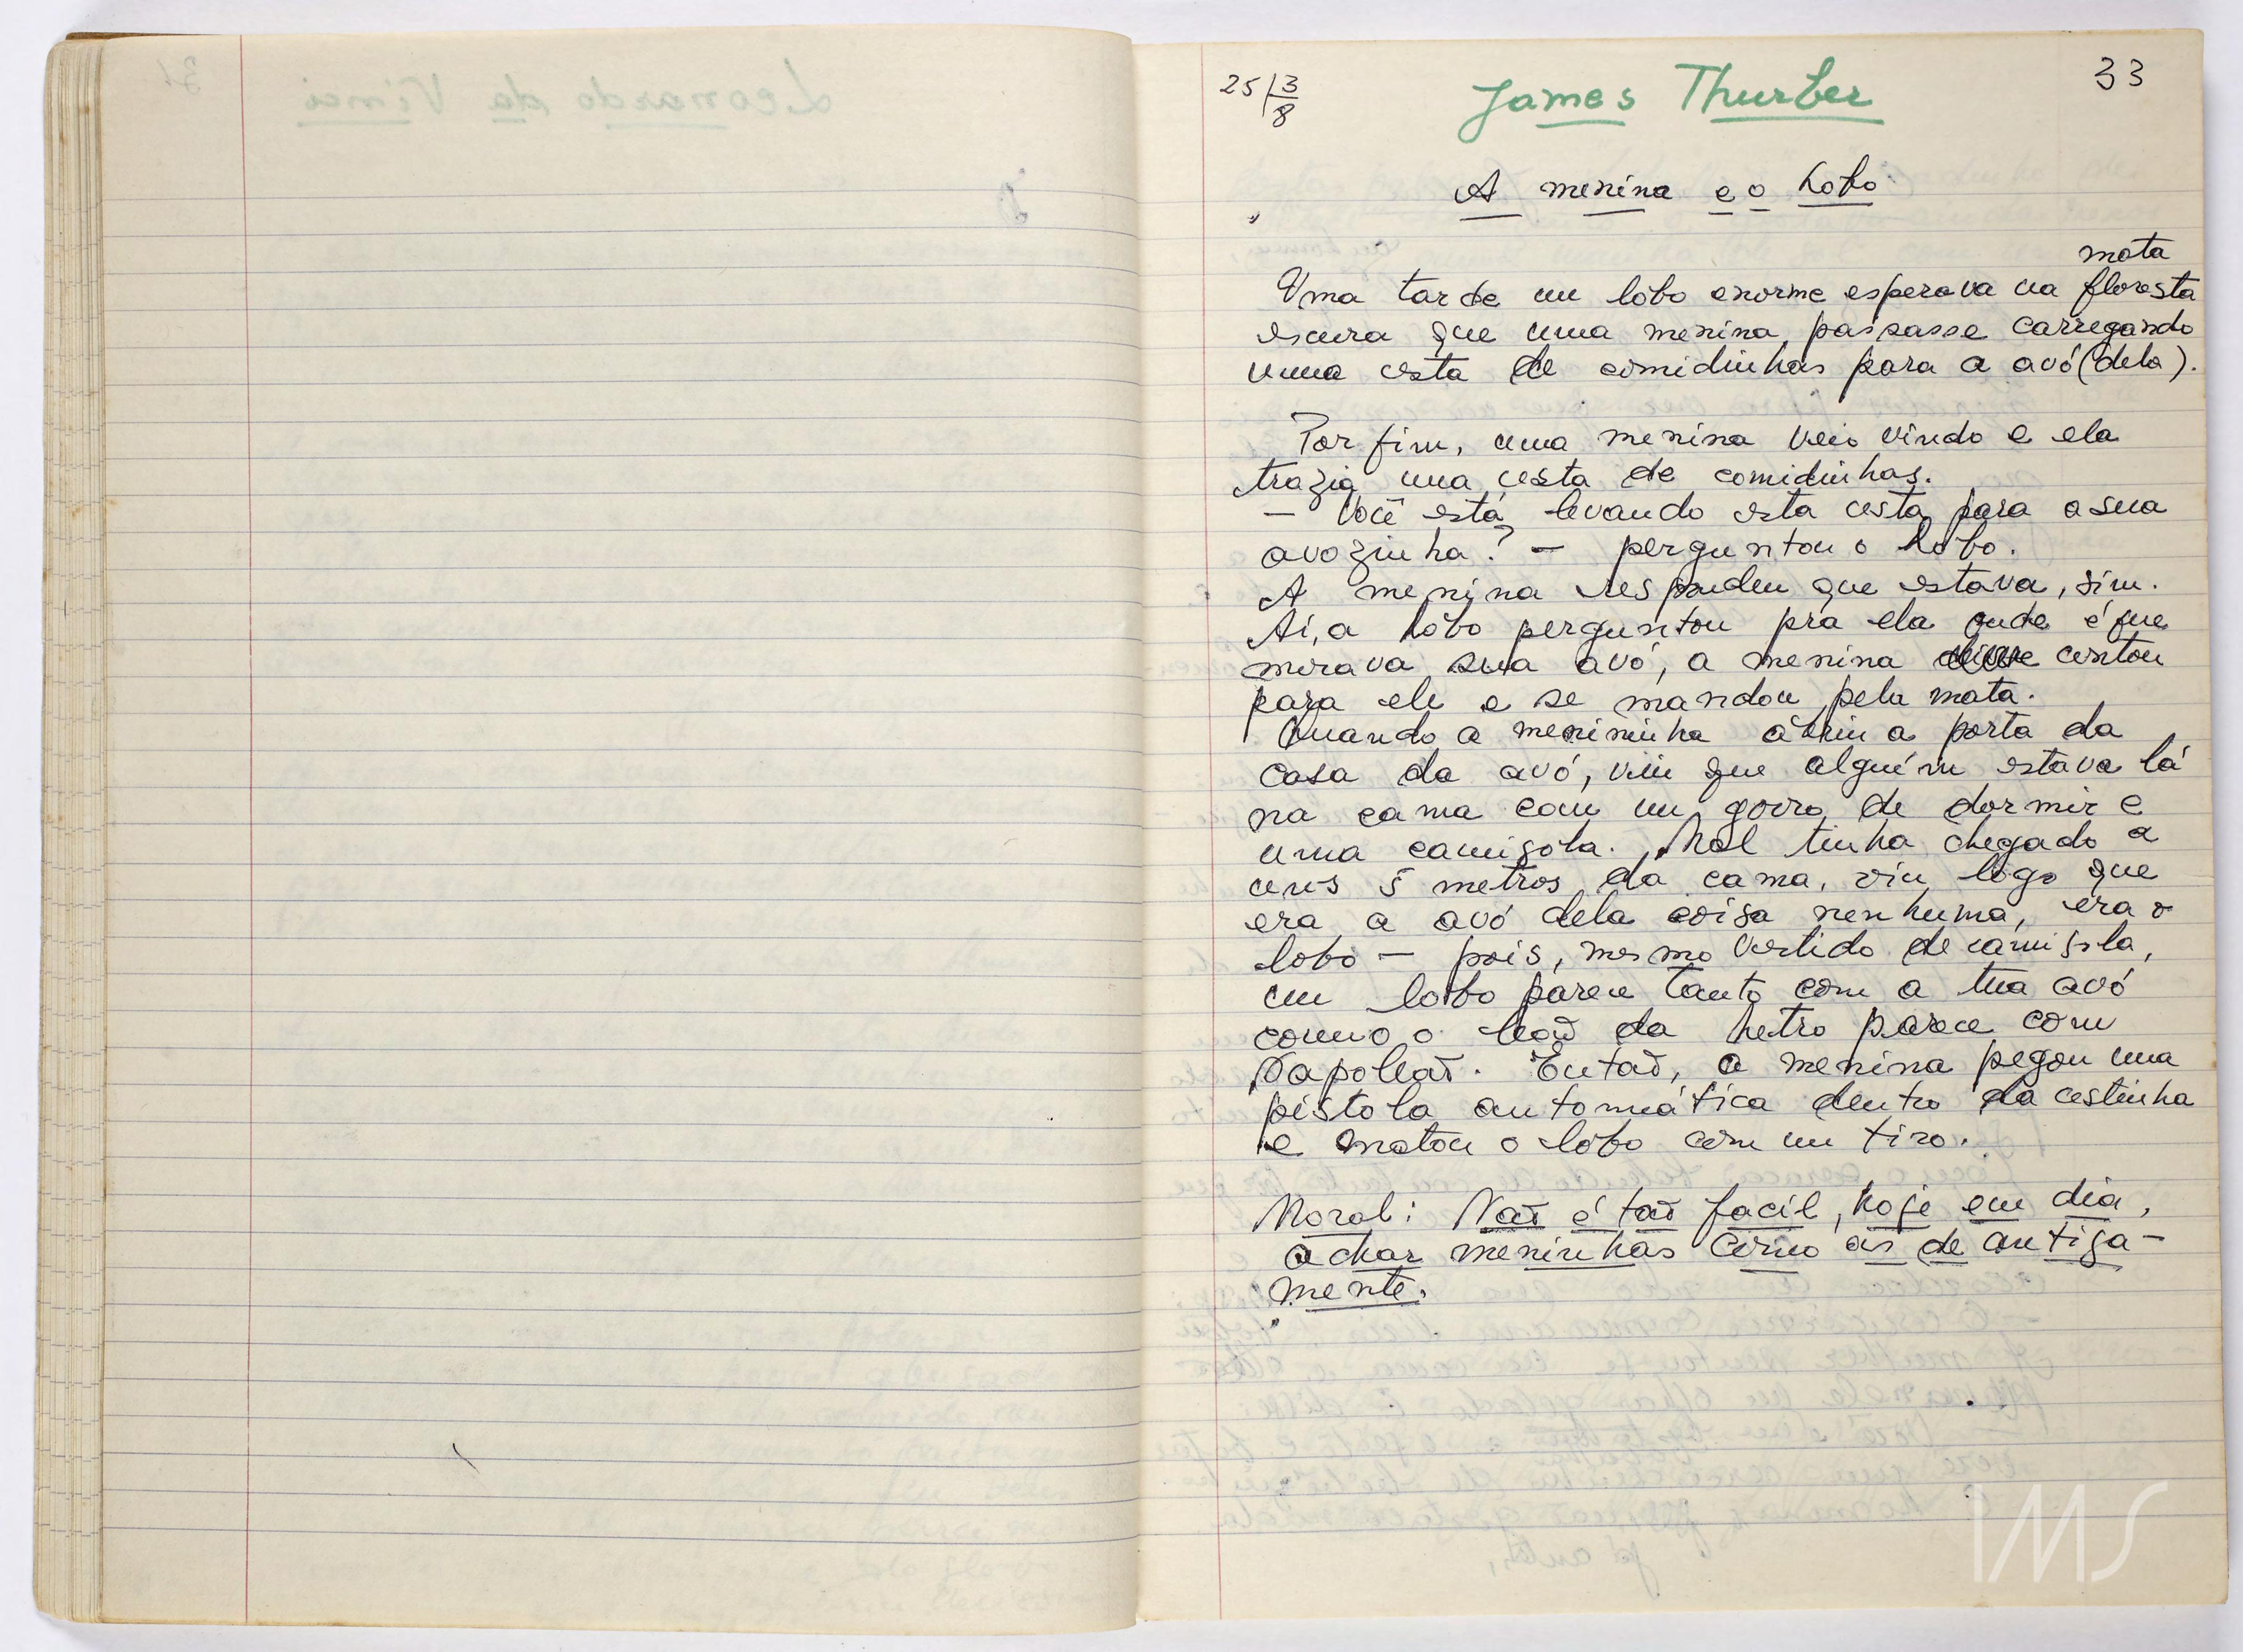 Leonardo da Vinci
31
25/3/8
James Thurber
33
A menina e o Lobo
mata
Uma tarde um lobo enorme esperava na floresta
escura que uma menina passasse carregando
uma cesta de comidinhas para a avó (dela).
Por fim, uma menina veio vindo e ela
trazia uma cesta de comidinhas.
— Você está levando esta cesta para a sua
avozinha? — perguntou o Lobo.
A menina respondeu que estava, sim.
Aí, o lobo perguntou pra ela onde é que
morava sua avó, a menina disse contou
para ele e se mandou pela mata.
Quando a menininha abriu a porta da
casa da avó, viu que alguém estava lá
na cama com um gorro de dormir e
uma camisola. Mal tinha chegado a
uns 5 metros da cama, viu logo que
era a avó dela coisa nenhuma, era o
lobo — pois, mesmo vestido de camisola,
um lobo parece tanto com a tua avó
como o leão da Metro parece com
Napoleão. Então, a menina pegou uma
pistola automática dentro da cestinha
e matou o lobo com um tiro.
Moral: Não é tão facil, hoje em dia,
achar menininhas como as de antiga-
mente.
IMS